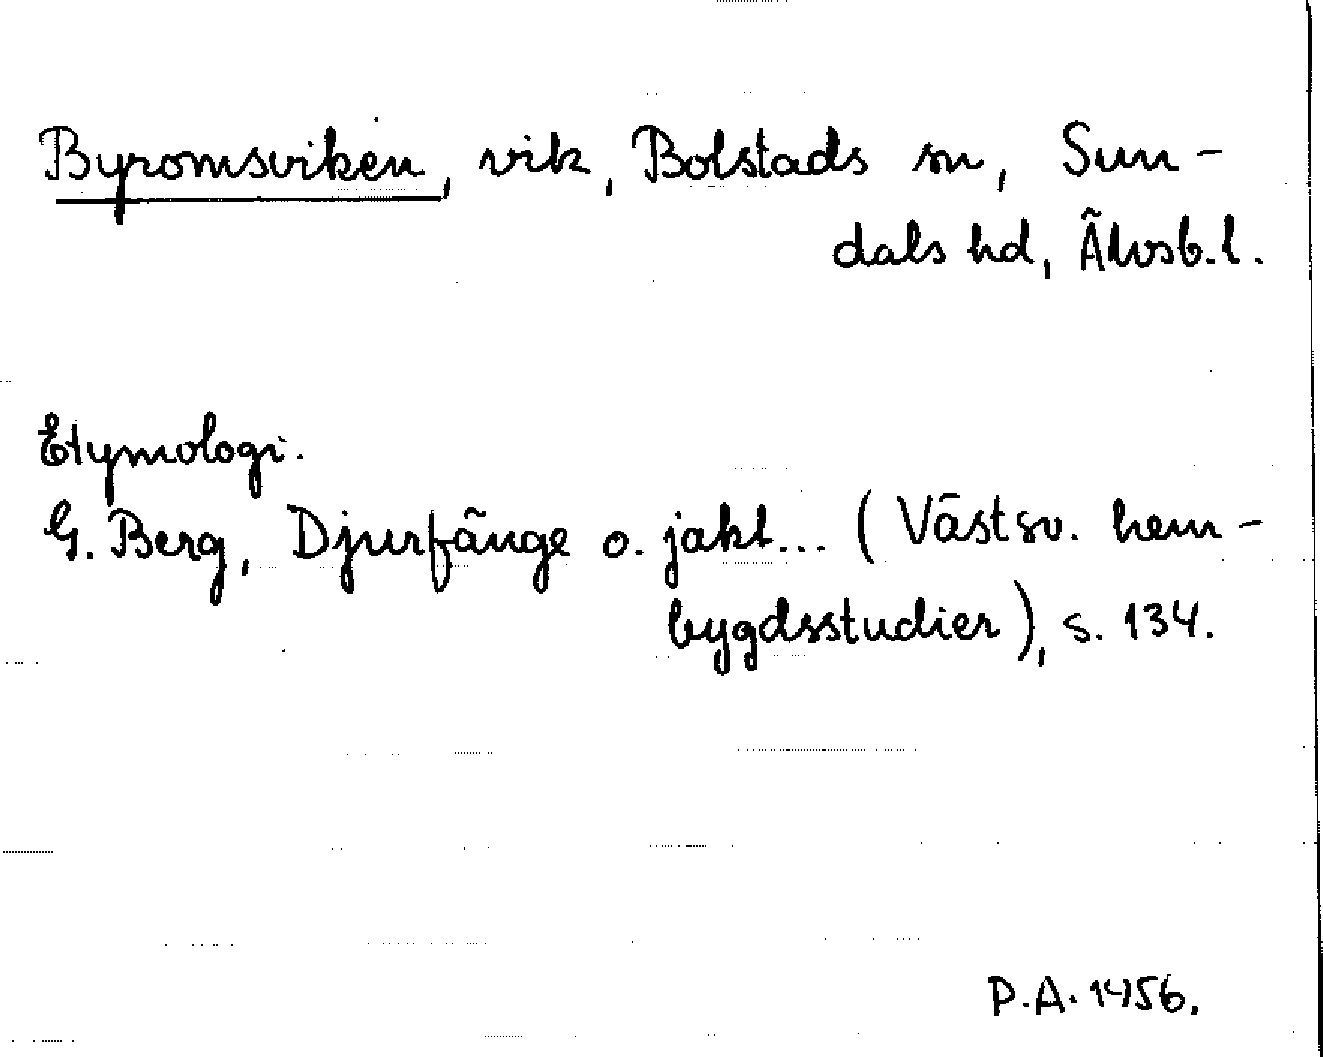 Byromsviken, vik, Bolstads sn, Sun-
dals hd, Älvsb.l.
Etymologi.
G. Berg, Djurfänge o. jakt... (Västsv. hem-
bygdsstudier), s. 134.
P.A. 1456.